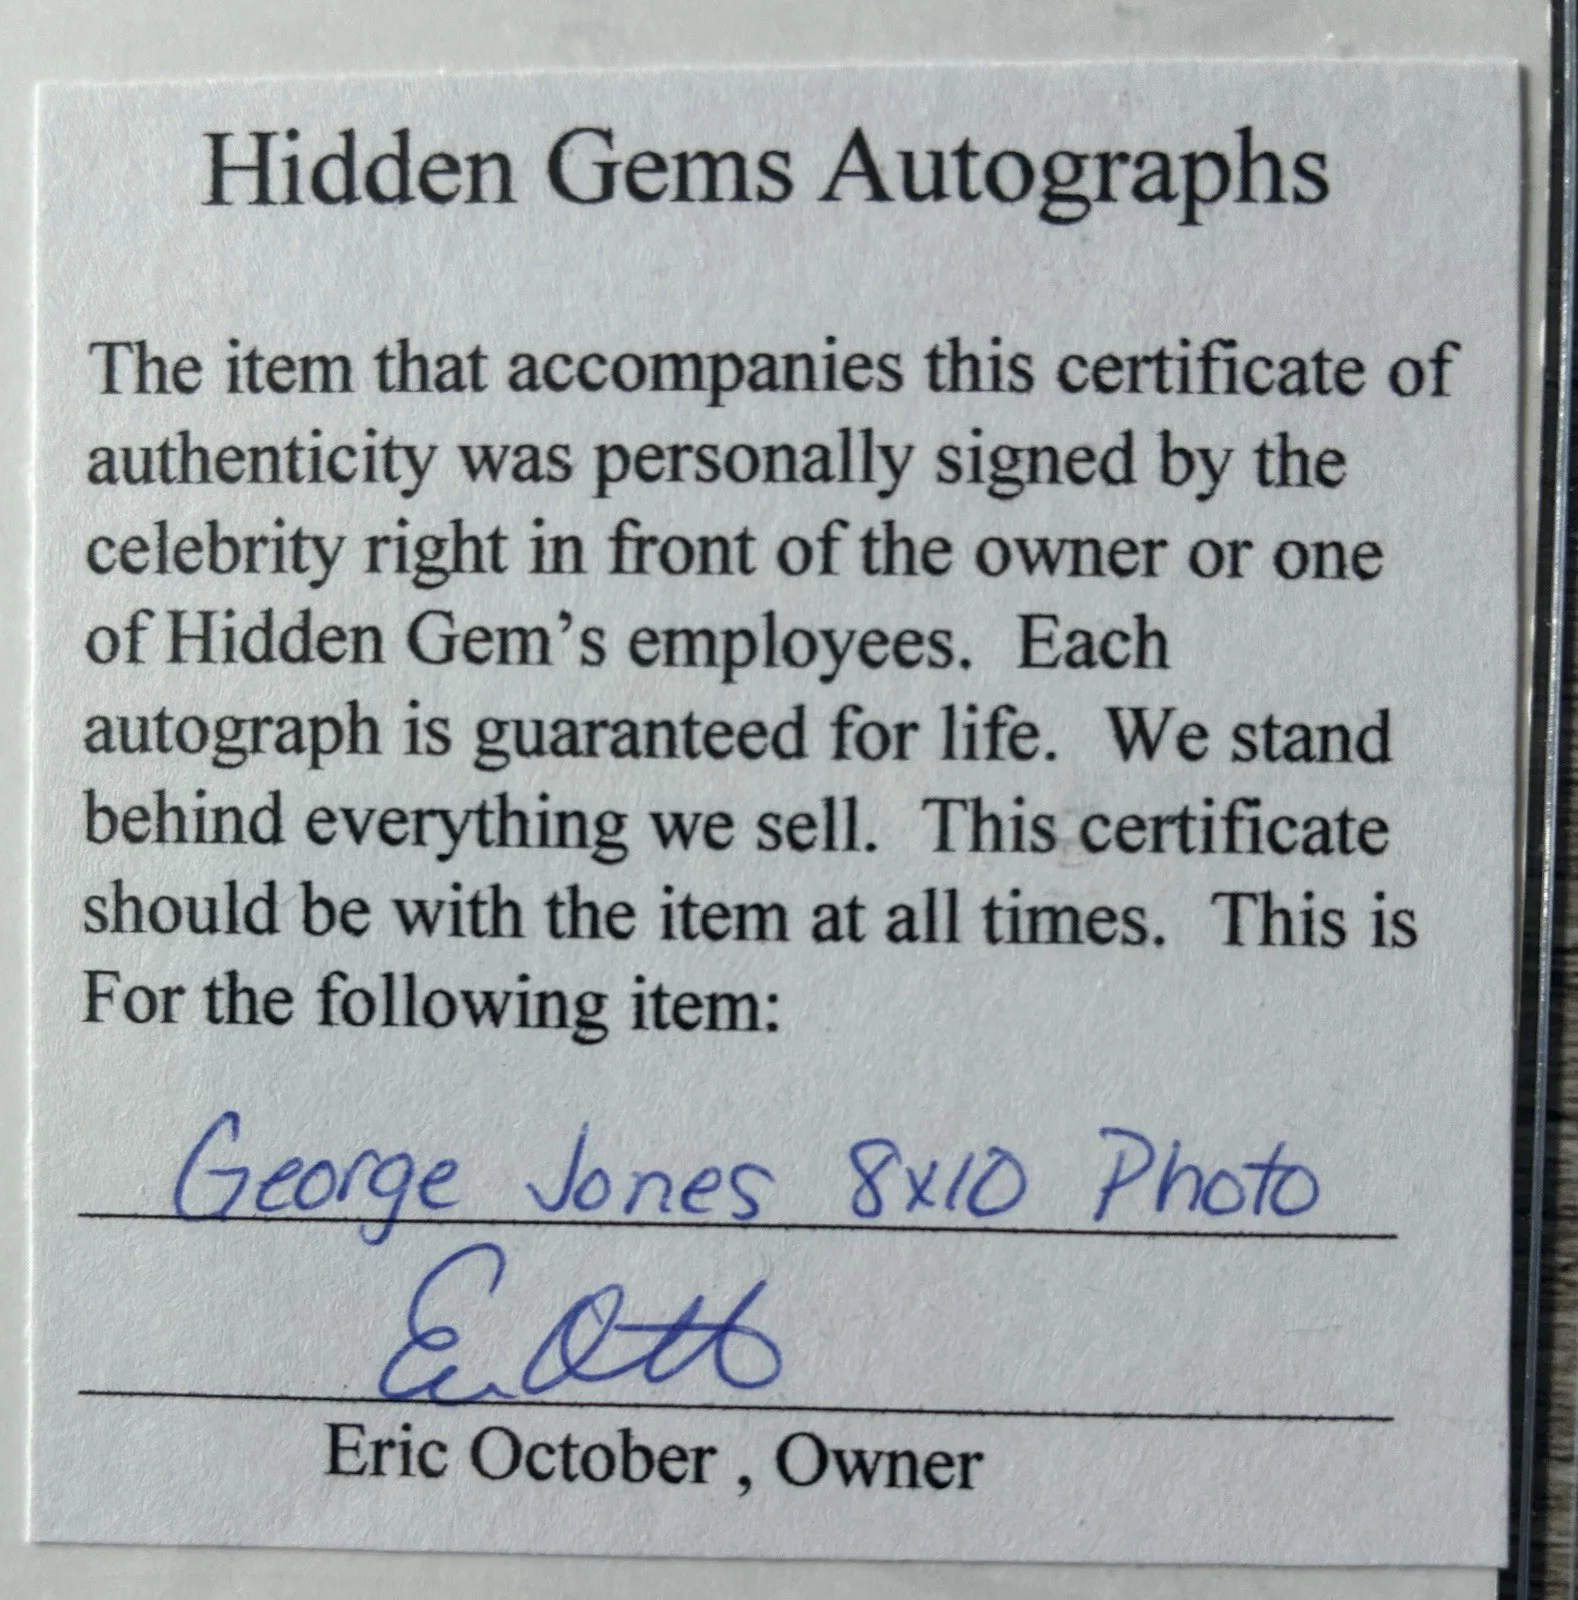 Hidden Gems Autographs
The item that accompanies this certificate of
authenticity was personally signed by the
celebrity right in front of the owner or one
of Hidden Gem’s employees.  Each
autograph is guaranteed for life.  We stand
behind everything we sell.  This certificate
should be with the item at all times.  This is
For the following item:
George Jones 8x10 Photo
Eric October , Owner